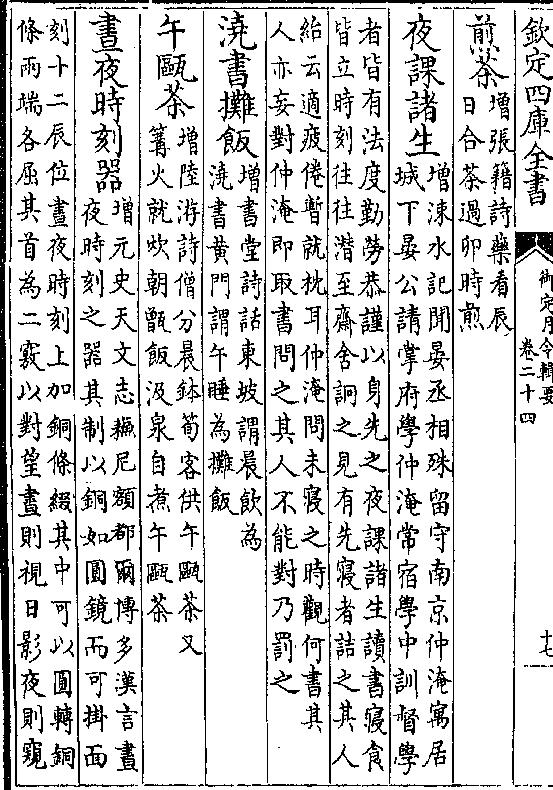 欽定四庫全書
御定月令輯要
卷二十四
十七
煎茶
增張籍詩藥看辰
日合茶過卯時煎
夜課諸生
增涑水記聞晏丞相殊留守南京仲淹寓居
城下晏公請掌府學仲淹常宿學中訓督學
者皆有法度勤勞恭謹以身先之夜課諸生讀書寢食
皆立時刻往往潛至齋舍詗之見有先寢者詰之其人
紿云適疲倦暫就枕耳仲淹問未寢之時觀何書其
人亦妄對仲淹即取書問之其人不能對乃罰之
澆書攤飯
增書堂詩話東坡謂晨飲為
澆書黄門謂午睡為攤飯
午甌茶
增陸游詩僧分晨鉢筍客供午甌茶又
篝火就炊朝甑飯汲泉自煮午甌茶
晝夜時刻器
增元史天文志䊵尼額都爾博多漢言晝
夜時刻之器其制以銅如圓鏡而可掛面
刻十二辰位晝夜時刻上加銅條綴其中可以圓轉銅
條兩端各屈其首為二竅以對望晝則視日影夜則窺